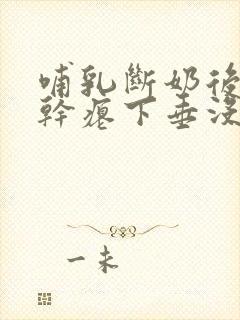 哺乳斷奶後
幹癟下垂沒
一未